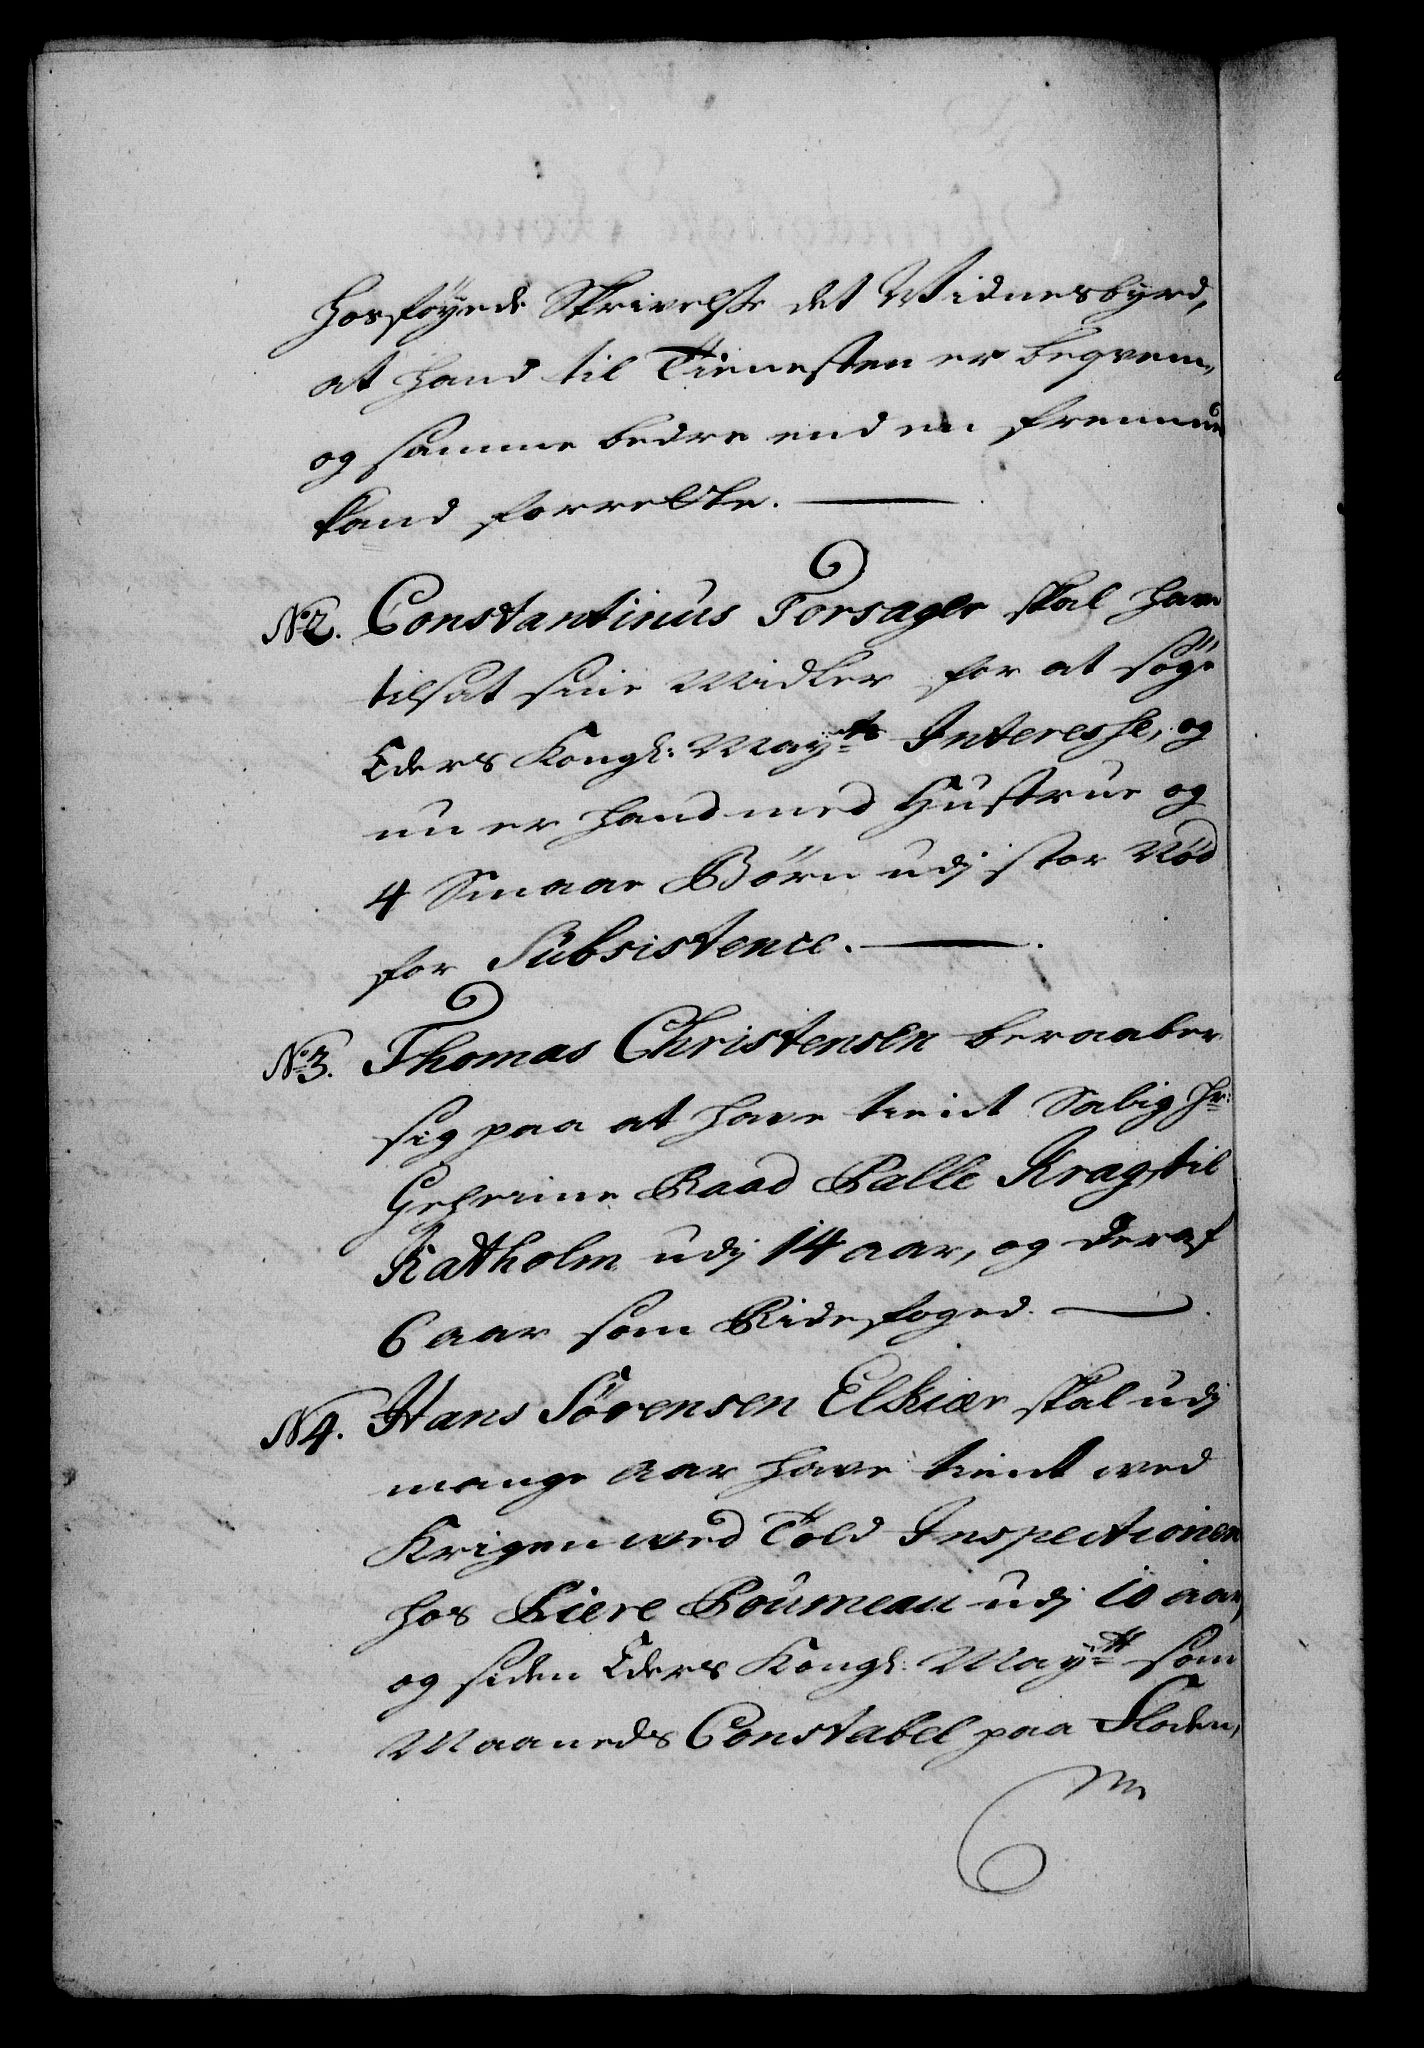 hosføyede Skrivelse det Widnesbyrd,
at hand til Tienesten er beqvem,
og samme bedre end en fremmed
kand forrette.
No 2. Constantinus Forsager skal have
tilsat sine Midler for at søge
Eders Kongl: Mayts Interesse, og
nu er hand med Hustrue og
4 Smaae Børn udj stor Nød
for Subsistence.
No 3. Thomas Christensen beraaber
sig paa at have tient Salig Hr:
Geheime Raad Palle Krag til
Katholm udj 14 aar, og deraf
6 aar som Ridefoged.
N 4. Hans Sørensen Elkiær skal udj
mange aar have tient ved
Krigen ved Told Inspectionen
hos Piere Poumeau udj 10 aar,
og siden Eders Kongl: Maytt som
Maaneds Constabel paa Floden,